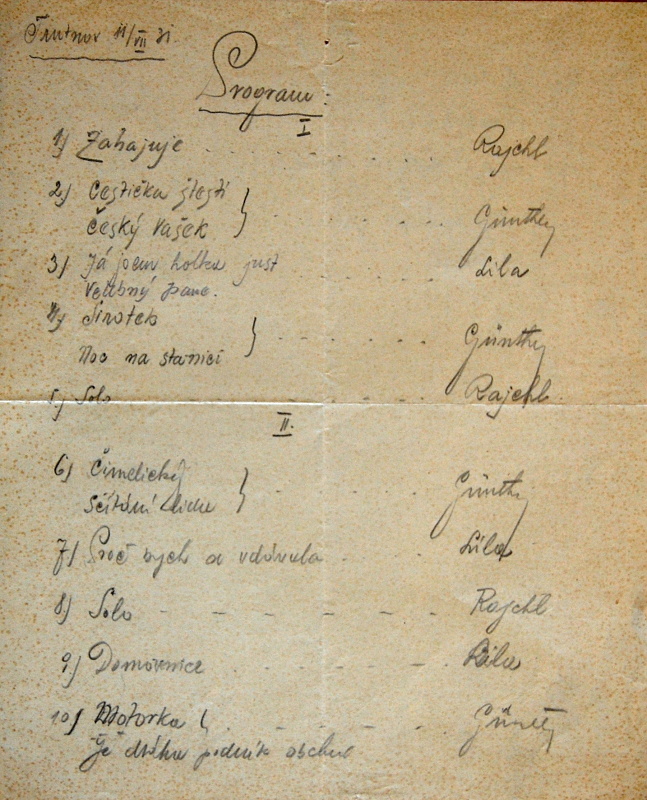 Trutnov 11/VII 31.
Program:
I
1) Zahajuje . . . . . Rajchl
2) Cestička štestí
Český Vašek } . . . . Günthey
3) Já jsem holka just . . . Lila
Velebný pane.
4) Sirotek
Noc na stanici } . . . . Günthy
5) Solo . . . Rajchl.
II.
6) Čimelický
Sčítání lidu } . . . Günthy
7) Proč bych se vdávala . . . Lila
8) Solo - - - - - - - Rajchl
9) Domovnice . . . . . Lila
10) Motorka { . - - - - Günthy
Je podnik obchod